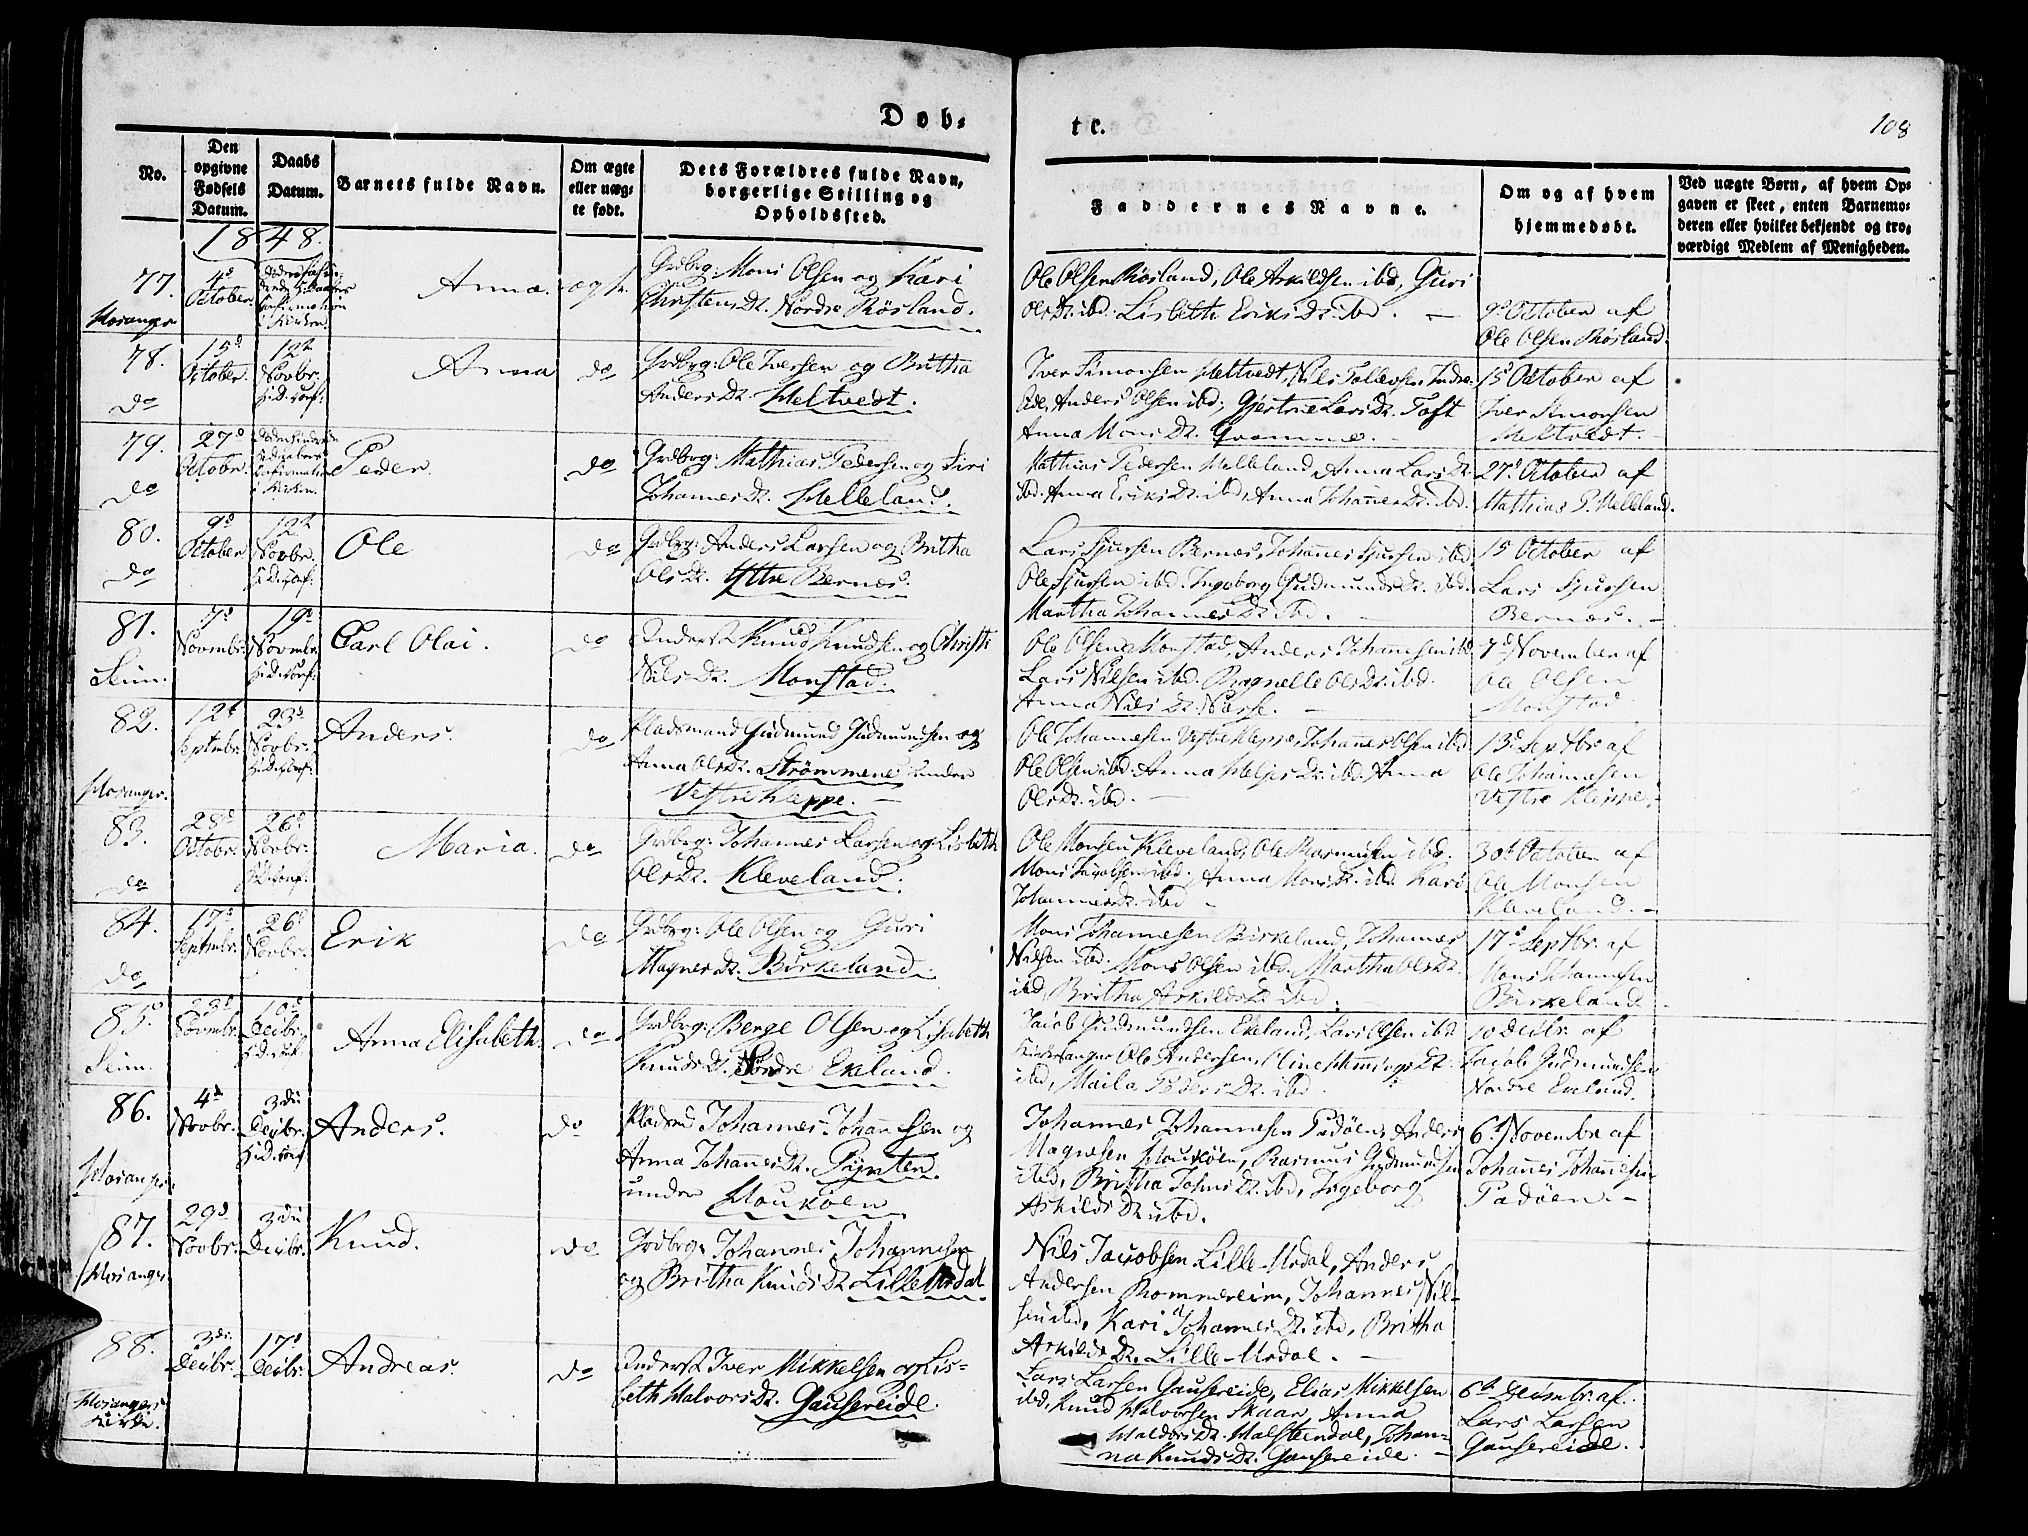 Døb-
te.
108
No.
Den
opgivne
Fødsels
Datum.
Daabs
Datum.
Barnets fulde Navn.
Om ægte
eller uæg-
te født.
Dets Forældres fulde Navn,
borgerlige Stilling og
Opholdssted.
Faddernes Navne.
Om og af hvem
hjemmedøbt.
Ved uægte Børn, af hvem Op-
gaven er skeet, enten Barnemo-
deren eller hvilket bekjendt og tro-
værdigt Medlem af Menigheden.
1848.
77.
Hosanger
4d
October
Confirmation
i Kirken.
Anna.
ægte
Grdbrg: Mons Olsen og Kari
Christensdt. Nordre Røsland.
Ole Olsen Røsland, Ole Arkildsen ibd, Guri
Olsdt. ibd. Lisbeth Eriksdt. ibd. —
9d October af
Ole Olsen Røsland.
78.
do
15d
October.
12t
Novbr.
Anna
do
Grdbrg: Ole Iversen og Britha
Andersdt. Heltvedt.
Iver Simonsen Heltvedt, Nils Tollevsen Indre-
Eide, Anders Olsen ibd, Gjertrue Larsdt. Toft
Anna Monsdt. Qvamme. —
15d October af
Iver Simonsen
Heltvedt. —
79.
do
27d
Octobr.
Confirmation
i Kirken.
Peder.
do
Grdbrg: Mathias Pedersen og Siri
Johannesdt. Helleland.
Mathias Pedersen Helleland, Anna Larsdt.
ibd. Anna Eriksdt. ibd, Anna Johannesdt. ibd.
27d October af
Mathias P. Helleland.
80.
do
9d
October
12t
Novbr.
Ole
do
Grdbrg: Anders Larsen og Britha
Olsdt. Yttre Bernes.
Lars Sjursen Bernes, Johannes Sjursen ibd.
Ole Sjursen ibd. Ingeborg Gudmundsdt. ibd.
Martha Johannesdt. ibd. —
15 October af
Lars Sjursen
Bernes. —
81.
Seim.
7d
Novmbr.
19d
Novmbr.
Carl Olai.
do
Knud Knudsen og Christi
Nilsdt. Monstad.
Ole Olsen Monstad, Anders Johannesen ibd
Lars Nilsen ibd. Ragnelle Olsdt. ibd.
Anna Nilsdt. Næsse. —
7d November af
Ole Olsen
Monstad
82.
Hosanger.
12t
Septmbr.
23d
Novbr.
Anders.
do
Pladsmand Gudmund Gudmundsen og
Anna Olsdt. Strømmene under
Vestre Kleppe. —
Ole Johannesen Vestre Kleppe, Johannes Olsen ibd
Ole Olsen ibd. Anna Heljesdt. ibd. Anna
Olsdt. ibd. —
13d Septbr. af
Ole Johannesen
Vestre Kleppe. —
83.
do
28d
Octobr.
26d
Novbr.
Maria.
do
Grdbrg: Johannes Larsen og Lisbeth
Olsdt. Kleveland.
Ole Monsen Kleveland, Ole Rasmusen ibd.
Mons Jacobsen ibd. Anna Monsdt. ibd. Kari
Johannesdt. ibd —
30t October af
Ole Monsen
Kleveland. —
84.
do
17d
Septmbr.
26d
Novbr.
Erik
do
Grdbrg: Ole Olsen og Guri
Magnesdt. Birkeland.
Mons Johannesen Birkeland, Johannes
Nilsen ibd. Mons Olsen ibd. Martha Olsdt.
ibd, Britha Arkildsdt. ibd. —
17d Septbr. af
Mons Johannesen
Birkeland —
85.
Seim.
23d
Novmbr.
10d
Decbr.
Anna Elisabeth.
do
Grdbrg: Berge Olsen og Lisabeth
Knudsdt. Nordre Ekeland.
Jacob Gudmundsen Ekeland, Lars Olsen ibd
Kirkesanger Ole Andersen, Oline Hemingsdt.
ibd, Maila Pedersdt. ibd.
10 Decbr. af
Jacob Gudmundsen
Nordre Ekeland.
86.
Hosanger.
4d
Novbr.
3die
Decbr.
Anders.
do
Pladsmd Johannes Johannesen og
Anna Johannesdt. Pynten
under Houkøen
Johannes Johannesen Padøen, Anders
Magnesen Houkøen, Rasmus Gudmundsen
ibd, Britha Johnsdt. ibd, Ingeborg
Arkildsdt. ibd.
6t Novembr. af
Johannes Johannesen
Padøen. —
87.
Hosanger
29d
Novbr.
3die
Decbr.
Knud.
do
Grdbrg: Johannes Johannesen
og Britha Knudsdt. Lille Urdal
Nils Jacobsen Lille-Urdal, Anders
Andersen Rommereim, Johannes Nil-
sen ibd, Kari Johannesdt. ibd, Britha
Arkildsdt. Lille-Urdal. —
88.
Hosangers
Kirke.
3die
Decbr.
17d
Decbr.
Andreas.
do
Iver Mikkelsen og Lis-
beth Halvorsdt. Gausereide
Lars Larsen Gausereide, Elias Mikkelsen
ibd, Knud Halvorsen Skaar, Anna
Haldorsdt. Halsteendal, Johan-
na Knudsdt. Gausereide. —
6t Decembr. af
Lars Larsen
Gausereide.